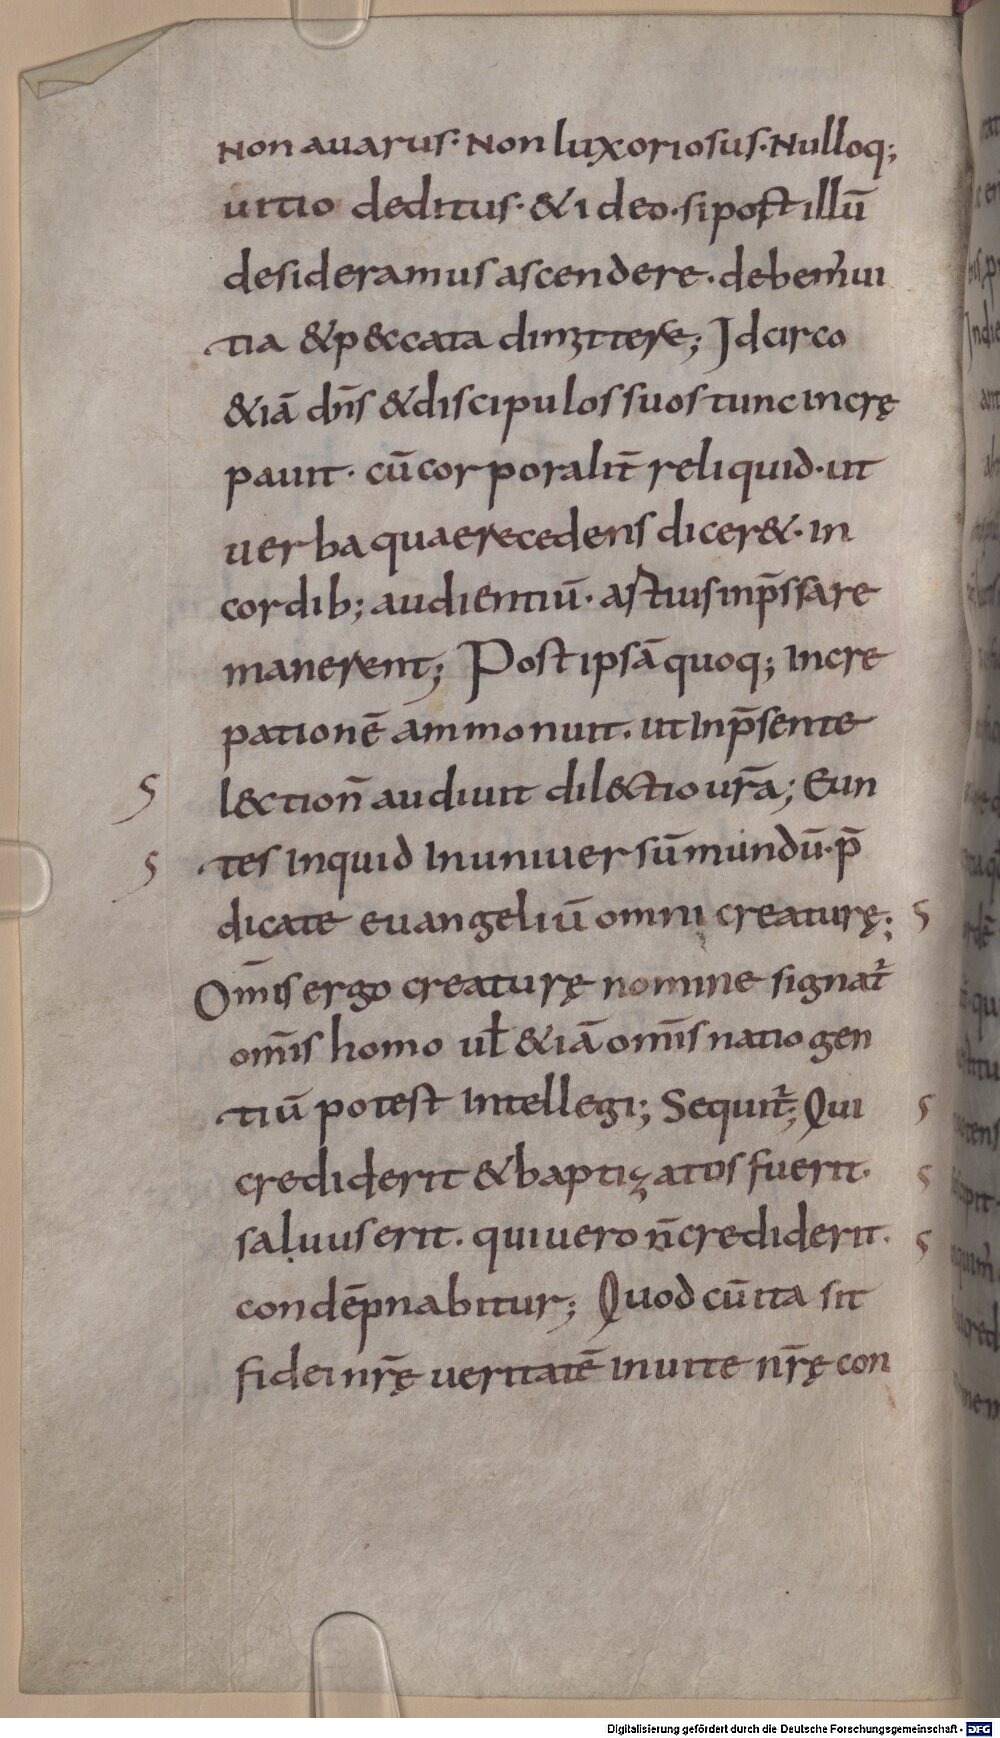 Non auarus· Non luxoriosus· Nulloq;
uitio deditus· & ideo· si post illū
desideramus ascendere· debem̄ ui
tia & p&ccata dimittere; Idcirco
&iā dn̄s & discipulos suos tunc incrę
pauit· cū corporalit̄ reliquid· ut
uerba quae recedens dicer&· in
cordib; audientiū· astius inp̄ssa re
manerent; Post ipsā quoq; incre
pationē ammonuit· ut inp̄sente
l&ction̄ audiuit dil&ctio ur̄a; Eun
tes inquid in uniuersū mundū· p̄
dicate euangeliū omni creaturę;
Om̄is ergo creaturę nomine signat̄
om̄is homo ul̄ &iā om̄is natio gen
tiū potest intellegi; Sequit̄; Qui
crediderit & baptizatus fuerit·
saluus erit· qui uero n̄ crediderit·
condēpnabitur; Quod cū ita sit
fidei nr̄ę ueritatē in uite nr̄ę con
Digitalisierung gefördert durch die Deutsche Forschungsgemeinschaft - DFG